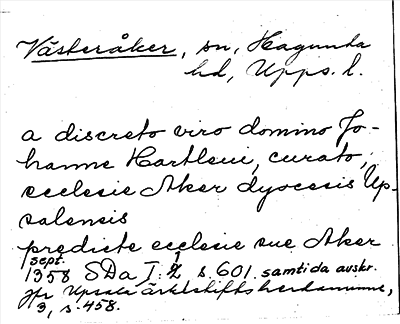 Västeråker, sn, Hagunda
hd, Upps. l.
a discreto viro domino Jo-
hanne Hartleui, curato,
ecclesie Aker dyocesis Up-
salensis
predicte ecclesie sue Aker
sept.
1358 SDa I: 2 s. 601. samtida avskr.
jfr Upsala ärkestifts herdaminne,
3, s. 458.